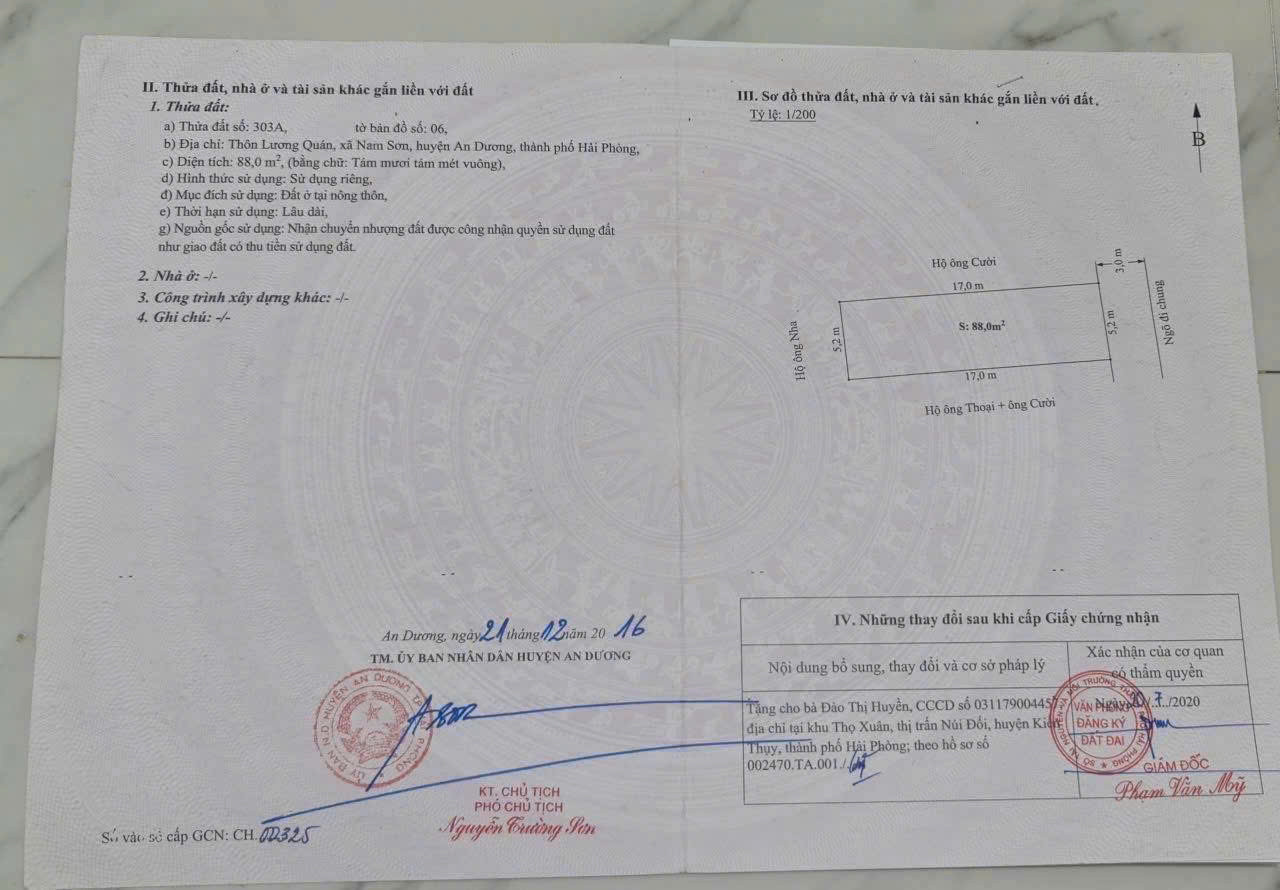 II. Thửa đất, nhà ở và tài sản khác gắn liền với đất
1. Thửa đất:
a) Thửa đất số: 303A, tờ bản đồ số: 06,
b) Địa chỉ: Thôn Lương Quán, xã Nam Sơn, huyện An Dương, thành phố Hải Phòng,
c) Diện tích: 88,0 m², (bằng chữ: Tám mươi tám mét vuông),
d) Hình thức sử dụng: Sử dụng riêng,
đ) Mục đích sử dụng: Đất ở tại nông thôn,
e) Thời hạn sử dụng: Lâu dài,
g) Nguồn gốc sử dụng: Nhận chuyển nhượng đất được công nhận quyền sử dụng đất
như giao đất có thu tiền sử dụng đất.
2. Nhà ở: -/-
3. Công trình xây dựng khác: -/-
4. Ghi chú: -/-
An Dương, ngày 21 tháng 12 năm 20 16
TM. ỦY BAN NHÂN DÂN HUYỆN AN DƯƠNG
KT. CHỦ TỊCH
PHÓ CHỦ TỊCH
Nguyễn Trường Sơn
Số vào sổ cấp GCN: CH. 00325
III. Sơ đồ thửa đất, nhà ở và tài sản khác gắn liền với đất.
Tỷ lệ: 1/200
B
Hộ ông Cười
3,0 m
17,0 m
Hộ ông Nha
5,2 m
S: 88,0m²
5,2 m
Ngõ đi chung
17,0 m
Hộ ông Thoại + ông Cười
IV. Những thay đổi sau khi cấp Giấy chứng nhận
Nội dung bổ sung, thay đổi và cơ sở pháp lý
Xác nhận của cơ quan
có thẩm quyền
Tặng cho bà Đào Thị Huyền, CCCD số 03117900445
địa chỉ tại khu Thọ Xuân, thị trấn Núi Đối, huyện Kiến
Thụy, thành phố Hải Phòng; theo hồ sơ số
002470.TA.001./.
7../2020
VĂN PHÒNG
ĐĂNG KÝ
ĐẤT ĐAI
GIÁM ĐỐC
Phạm Văn Mỹ